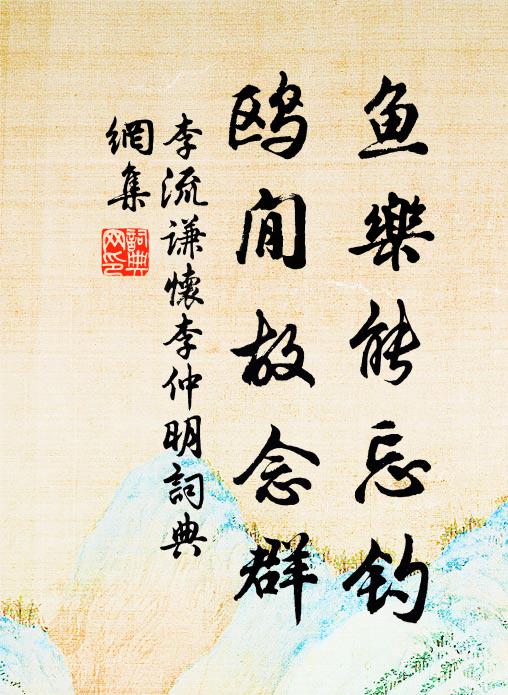 鱼樂能忘钓
鸥闲故念群
李流谦懷李仲明詞典
網集
詞典
网印